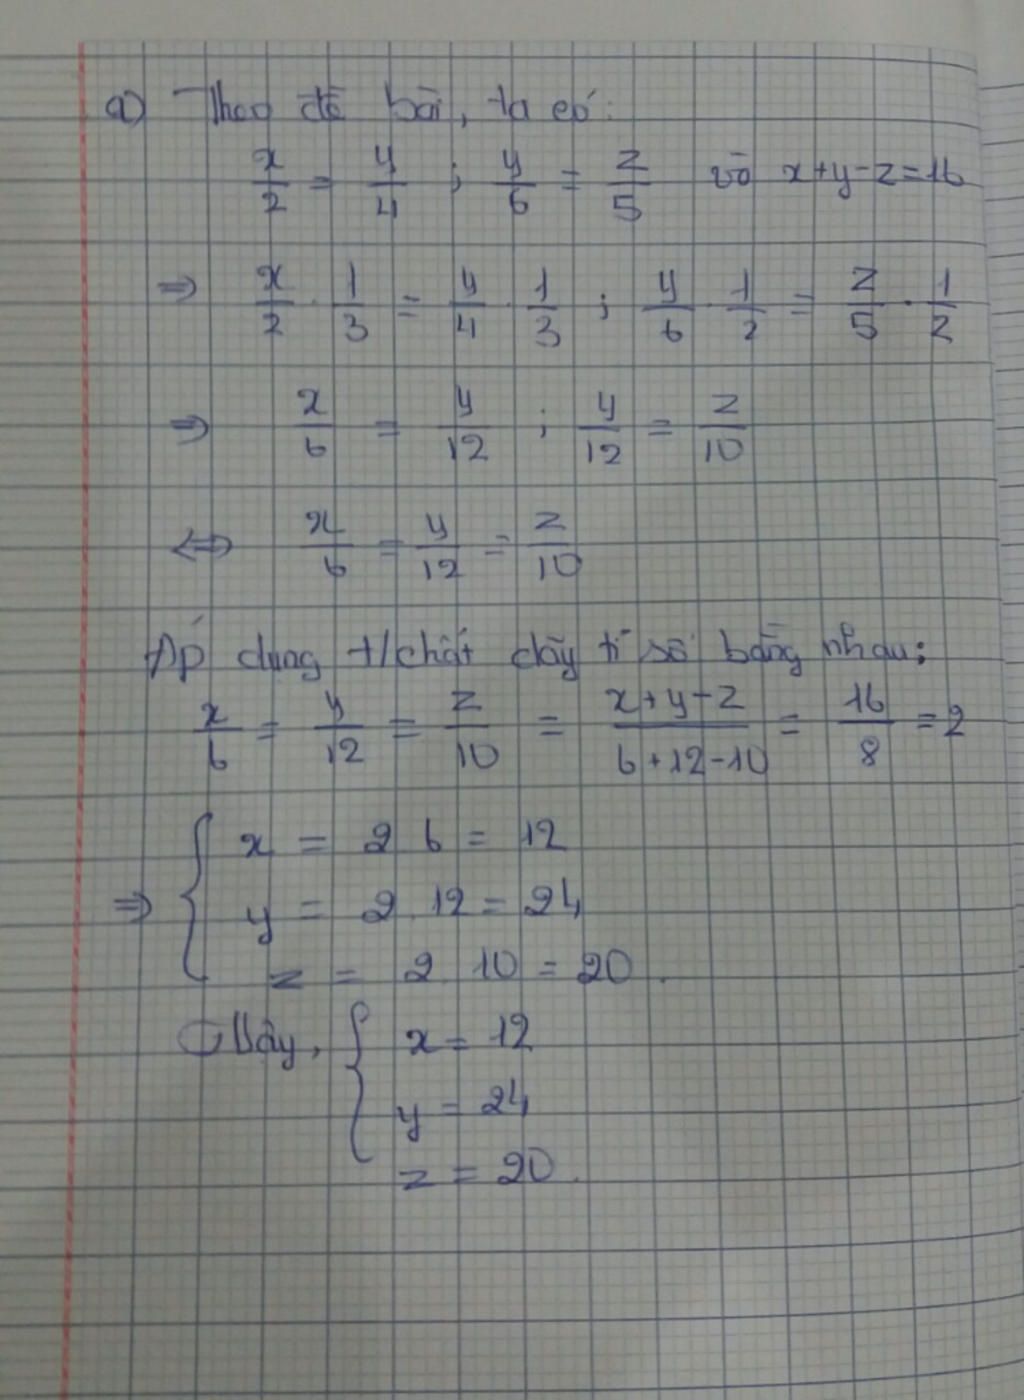 a) Theo đề bài, ta có:
x/2 = y/4 ; y/6 = z/5 và x+y-z=16
⇒ x/2 . 1/3 = y/4 . 1/3 ; y/6 . 1/2 = z/5 . 1/2
⇒ x/6 = y/12 ; y/12 = z/10
⇔ x/6 = y/12 = z/10
Áp dụng t/chất dãy tỉ số bằng nhau:
x/6 = y/12 = z/10 = (x+y-z)/(6+12-10) = 16/8 = 2
⇒ { x = 2 6 = 12
y = 2.12 = 24
z = 2 10 = 20.
Vậy, { x = 12
y = 24
z = 20.